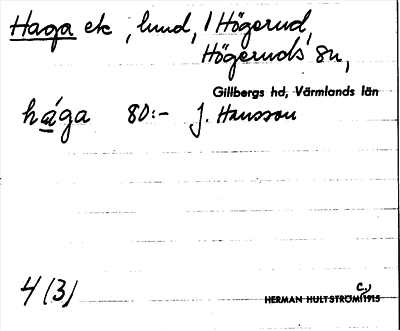 Haga ek, lund, / Högerud,
Högeruds sn,
Gillbergs hd, Värmlands län
hága 80:- J. Hansson
4 (3)
c,
HERMAN HULTSTRÖM 1915